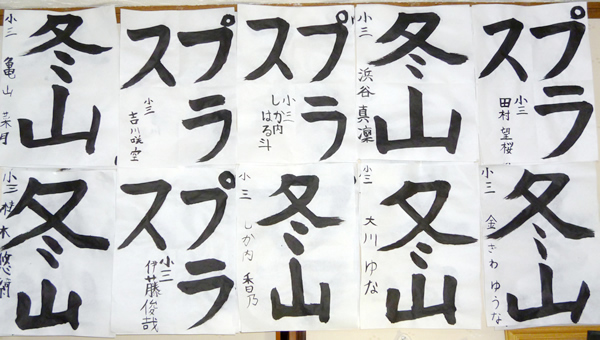 冬山
小三 亀山 菜月
プラス
小三 吉川 咲空
プラス
小三 しか内 はる斗
冬山
小三 浜谷 真凜
プラス
小三 田村 望桜
冬山
小三
プラス
小三 伊藤俊哉
冬山
小三 しか内 香乃
冬山
小三 大川 ゆな
冬山
小三 金ざわ ゆうな